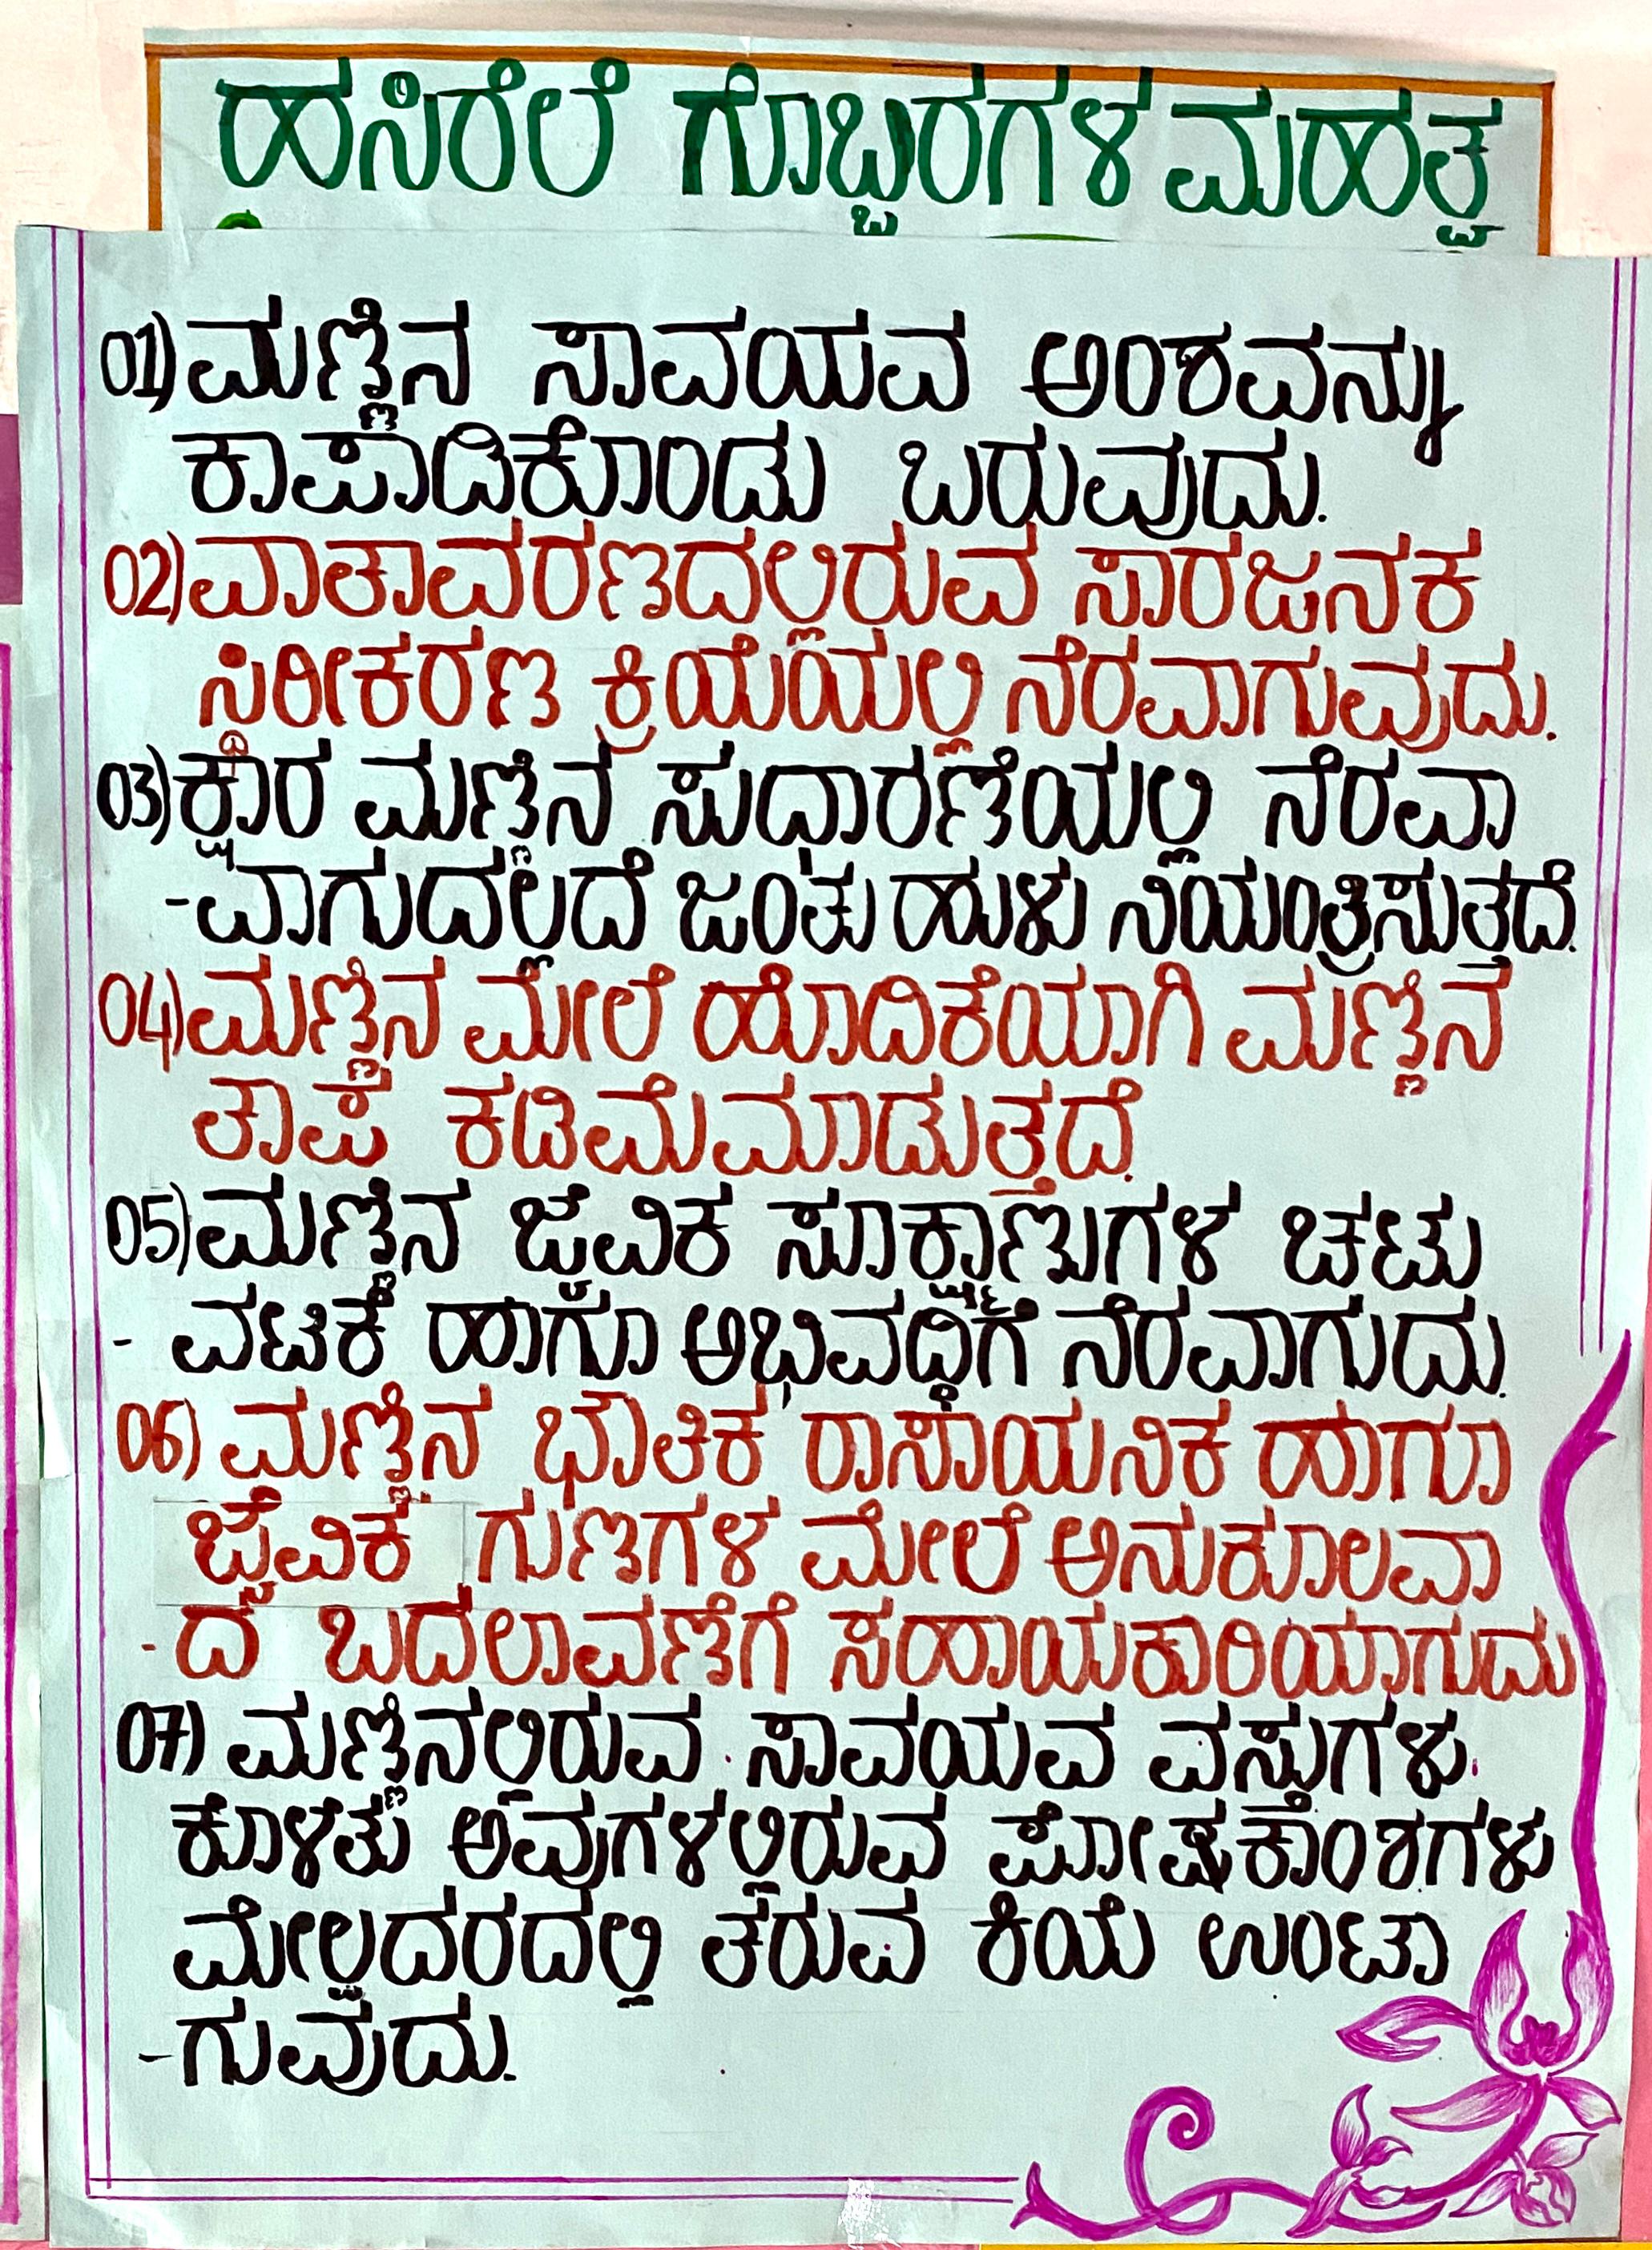 ಹಸಿರೆಲೆ ಗೊಬ್ಬರಗಳ ಮಹತ್ವ
01) ಮಣ್ಣಿನ ಸಾವಯವ ಅಂಶವನ್ನು
ಕಾಪಾಡಿಕೊಂಡು ಬರುವುದು.
02) ವಾತಾವರಣದಲ್ಲಿರುವ ಸಾರಜನಕ
ಸ್ಥಿರೀಕರಣ ಕ್ರಿಯೆಯಲ್ಲಿ ನೆರವಾಗುವುದು.
03) ಕ್ಷಾರ ಮಣ್ಣಿನ ಸುಧಾರಣೆಯಲ್ಲಿ ನೆರವಾ
-ವಾಗುದಲ್ಲದೆ ಜಂತು ಹುಳು ನಿಯಂತ್ರಿಸುತ್ತದೆ.
04) ಮಣ್ಣಿನ ಮೇಲೆ ಹೊದಿಕೆಯಾಗಿ ಮಣ್ಣಿನ
ತಾಪ ಕಡಿಮೆಮಾಡುತ್ತದೆ.
05) ಮಣ್ಣಿನ ಜೈವಿಕ ಸೂಕ್ಷ್ಮಾಣುಗಳ ಚಟು
- ವಟಿಕೆ ಹಾಗೂ ಅಭಿವದ್ಧಿಗೆ ನೆರವಾಗುದು.
06) ಮಣ್ಣಿನ ಭೌತಿಕ ರಾಸಾಯನಿಕ ಹಾಗೂ
ಜೈವಿಕ ಗುಣಗಳ ಮೇಲೆ ಅನುಕೂಲವಾ
- ದ ಬದಲಾವಣೆಗೆ ಸಹಾಯಕಾರಿಯಾಗುದು
07) ಮಣ್ಣಿನಲ್ಲಿರುವ ಸಾವಯವ ವಸ್ತುಗಳು
ಕೊಳತು ಅವುಗಳಲ್ಲಿರುವ ಪೋಷಕಾಂಶಗಳು
ಮೇಲ್ಪದರದಲ್ಲಿ ತರುವ ಕಿಯೆ ಉಂಟಾ
-ಗುವುದು.